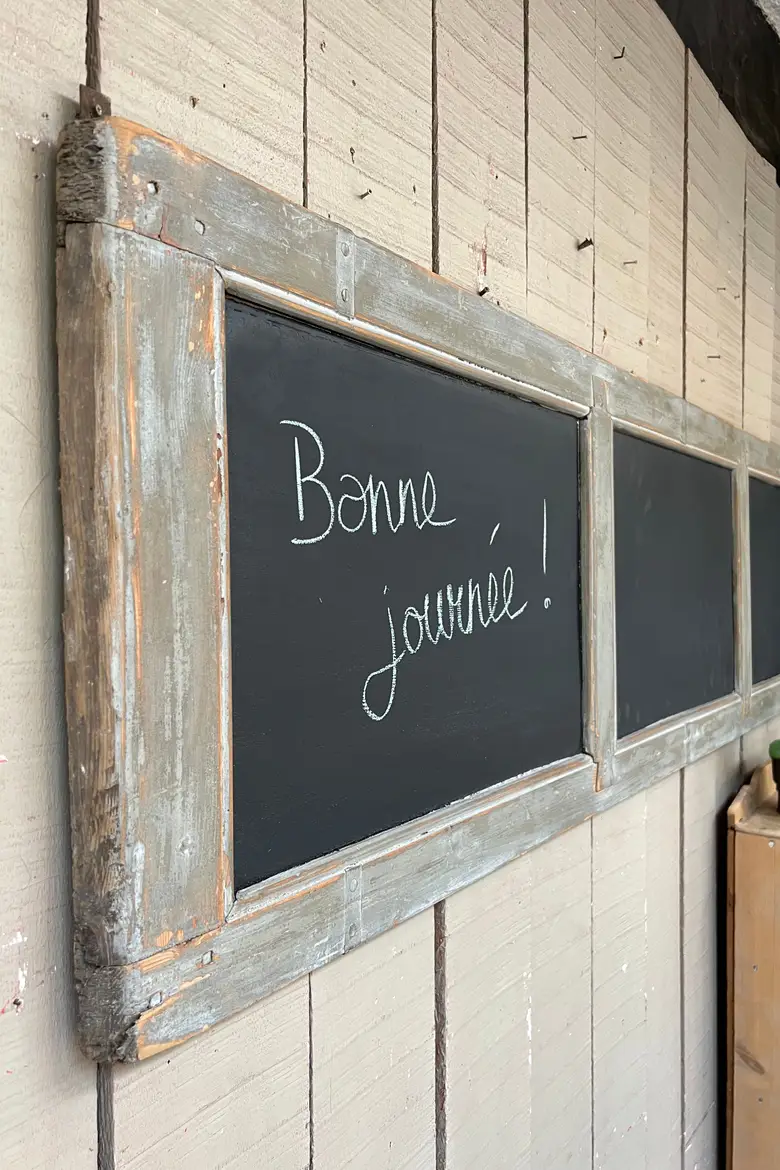 Bonne
journée !